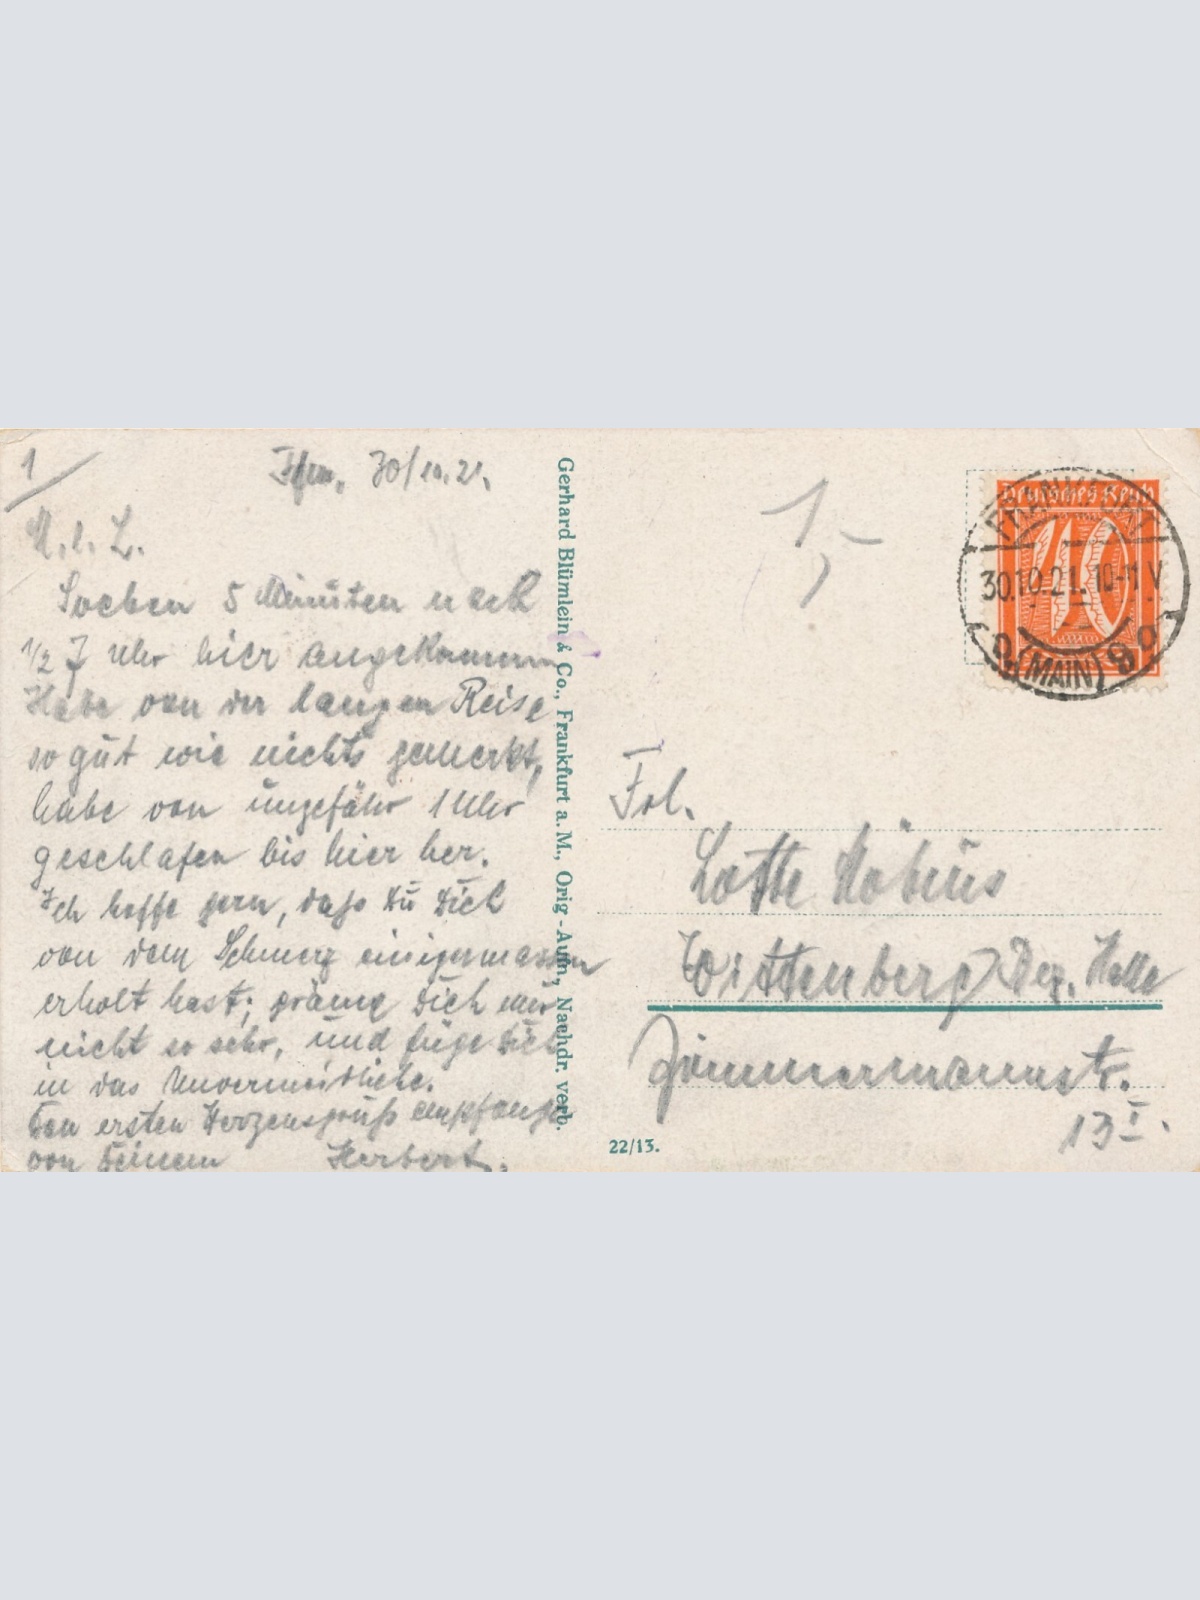 1
30/10.21.
M. l. L.
Soeben 5 Minuten nach
1/2 7 Uhr hier angekommen
Habe von der langen Reise
so gut wie nichts gemerkt,
habe von ungefähr 1 Uhr
geschlafen bis hier her.
Ich hoffe gern, dass Du Dich
von dem Schmerz einigermassen
erholt hast; gräme Dich nur
nicht so sehr, und füge Dich
in das Unvermeidliche.
Den ersten Herzensgruß empfange
von Deinem Herbert.
Gerhard Blümlein & Co., Frankfurt a. M., Orig-Aufn., Nachdr. verb.
22/13.
1,-
Deutsches Reich
40
FRANKFURT
30.10.21. 10-11 V.
(MAIN) 9
Frl.
Lotte Möbius
Wittenberg, Bez. Halle
Zimmermannstr.
13 I.